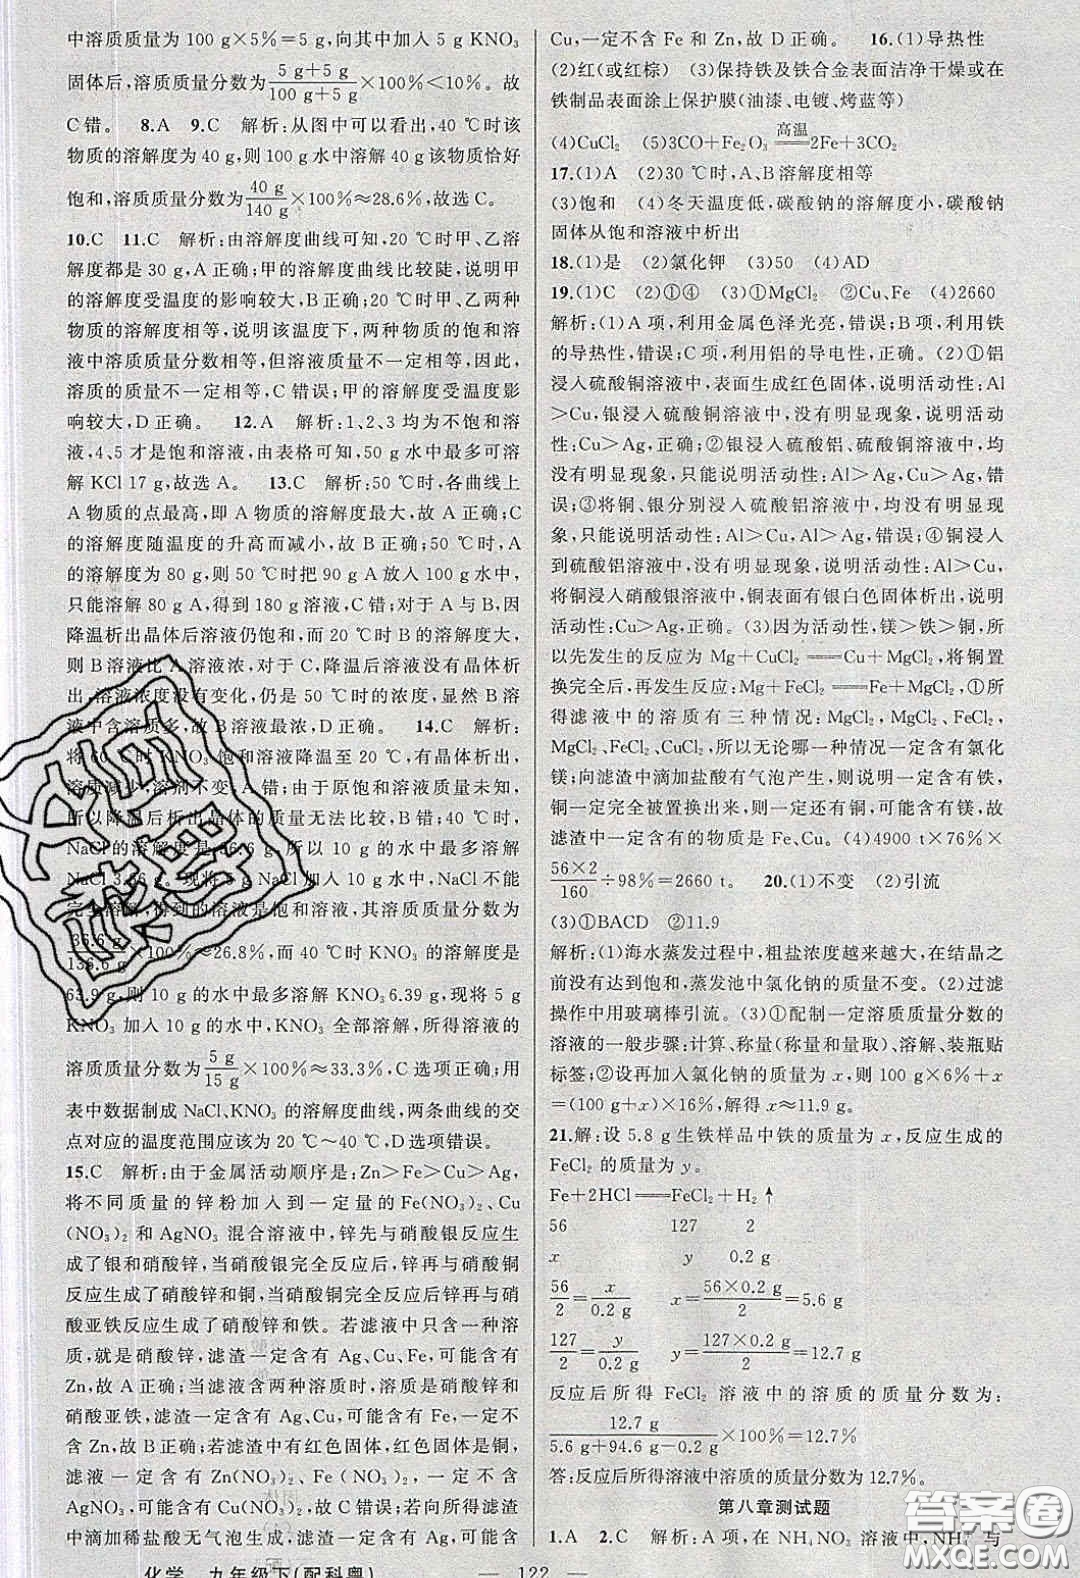 中溶质质量为 100 g×5%=5 g,向其中加入 5 g KNO₃
固体后,溶质质量分数为(5 g+5 g)/(100 g+5 g)×100%<10%。故
C 错。 8.A 9.C 解析:从图中可以看出,40 ℃时该
物质的溶解度为 40 g,则 100 g 水中溶解 40 g 该物质恰好
饱和,溶质质量分数为(40 g)/(140 g)×100%≈28.6%,故选 C。
10.C 11.C 解析:由溶解度曲线可知,20 ℃时甲、乙溶
解度都是 30 g,A 正确;甲的溶解度曲线比较陡,说明甲
的溶解度受温度的影响较大,B 正确;20 ℃时甲、乙两种
物质的溶解度相等,说明该温度下,两种物质的饱和溶
液中溶质质量分数相等,但溶液质量不一定相等,因此,
溶质的质量不一定相等,C 错误;甲的溶解度受温度影
响较大,D 正确。 12.A 解析:1、2、3 均为不饱和溶
液,4、5 才是饱和溶液,由表格可知,50 g 水中最多可溶
解 KCl 17 g,故选 A。 13.C 解析:50 ℃时,各曲线上
A 物质的点最高,即 A 物质的溶解度最大,故 A 正确;C
的溶解度随温度的升高而减小,故 B 正确;50 ℃时,A
的溶解度为 80 g,则 50 ℃时把 90 g A 放入 100 g 水中,
只能溶解 80 g A,得到 180 g 溶液,C 错;对于 A、B,因
降温析出晶体后溶液仍饱和,而 20 ℃时 B 的溶解度大,
则 B 溶液比 A 溶液浓,对于 C,降温后溶液没有晶体析
出,溶液浓度没有变化,仍是 50 ℃时的浓度,显然 B 溶
液中含溶质多,故 B 溶液最浓,D 正确。 14.C 解析:
将 60 ℃时 KNO₃ 饱和溶液降温至 20 ℃,有晶体析出,
溶质减少,溶剂不变,A 错;由于原饱和溶液质量未知,
所以降温后析出晶体的质量无法比较,B 错;40 ℃时,
NaCl 的溶解度是 36.6 g,所以 10 g 的水中最多溶解
NaCl 3.66 g。现将 5 g NaCl 加入 10 g 水中,NaCl 不能
完全溶解,得到的溶液是饱和溶液,其溶质质量分数为
(36.6 g)/(136.6 g)×100%≈26.8%,而 40 ℃时 KNO₃ 的溶解度是
63.9 g,则 10 g 的水中最多溶解 KNO₃ 6.39 g,现将 5 g
KNO₃ 加入 10 g 的水中,KNO₃ 全部溶解,所得溶液的
溶质质量分数为(5 g)/(15 g)×100%≈33.3%,C 选项正确;用
表中数据制成 NaCl、KNO₃ 的溶解度曲线,两条曲线的交
点对应的温度范围应该为 20 ℃~40 ℃,D 选项错误。
15.C 解析:由于金属活动顺序是:Zn>Fe>Cu>Ag,
将不同质量的锌粉加入到一定量的 Fe(NO₃)₂、Cu
(NO₃)₂ 和 AgNO₃ 混合溶液中,锌先与硝酸银反应生
成了银和硝酸锌,当硝酸银完全反应后,锌再与硝酸铜
反应生成了硝酸锌和铜,当硝酸铜完全反应后锌再与硝
酸亚铁反应生成了硝酸锌和铁。若滤液中只含一种溶
质,就是硝酸锌,滤渣一定含有 Ag、Cu、Fe,可能含有
Zn,故 A 正确;若滤液含两种溶质时,溶质是硝酸锌和
硝酸亚铁,滤渣一定含有 Ag、Cu,可能含有 Fe,一定不
含 Zn,故 B 正确;若滤渣中有红色固体,红色固体是铜,
滤液一定含有 Zn(NO₃)₂、Fe(NO₃)₂,一定不含
AgNO₃,可能含有 Cu(NO₃)₂,故 C 错误;若向所得滤渣
中滴加稀盐酸无气泡生成,滤渣一定含有 Ag,可能含有
Cu,一定不含 Fe 和 Zn,故 D 正确。 16.(1)导热性
(2)红(或红棕) (3)保持铁及铁合金表面洁净干燥或在
铁制品表面涂上保护膜(油漆、电镀、烤蓝等)
(4)CuCl₂ (5)3CO+Fe₂O₃ =高温= 2Fe+3CO₂
17.(1)A (2)30 ℃时,A、B 溶解度相等
(3)饱和 (4)冬天温度低,碳酸钠的溶解度小,碳酸钠
固体从饱和溶液中析出
18.(1)是 (2)氯化钾 (3)50 (4)AD
19.(1)C (2)①④ (3)①MgCl₂ ②Cu、Fe (4)2660
解析:(1)A 项,利用金属色泽光亮,错误;B 项,利用铁
的导热性,错误;C 项,利用铝的导电性,正确。(2)①铝
浸入硫酸铜溶液中,表面生成红色固体,说明活动性:Al
>Cu,银浸入硫酸铜溶液中,没有明显现象,说明活动
性:Cu>Ag,正确;②银浸入硫酸铝、硫酸铜溶液中,均
没有明显现象,只能说明活动性:Al>Ag,Cu>Ag,错
误;③将铜、银分别浸入硫酸铝溶液中,均没有明显现
象,只能说明活动性:Al>Cu,Al>Ag,错误;④铜浸入
到硫酸铝溶液中,没有明显现象,说明活动性:Al>Cu,
将铜浸入硝酸银溶液中,铜表面有银白色固体析出,说明
活动性:Cu>Ag,正确。(3)因为活动性,镁>铁>铜,所
以先发生的反应为 Mg+CuCl₂══Cu+MgCl₂,将铜置
换完全后,再发生反应:Mg+FeCl₂══Fe+MgCl₂,①所
得滤液中的溶质有三种情况:MgCl₂,MgCl₂、FeCl₂,
MgCl₂、FeCl₂、CuCl₂,所以无论哪一种情况一定含有氯化
镁;向滤渣中滴加盐酸有气泡产生,则说明一定含有铁,
铜一定完全被置换出来,则一定还有铜,可能含有镁,故
滤渣中一定含有的物质是 Fe、Cu。(4)4900 t×76%×
(56×2)/160÷98%=2660 t。 20.(1)不变 (2)引流
(3)①BACD ②11.9
解析:(1)海水蒸发过程中,粗盐浓度越来越大,在结晶之
前没有达到饱和溶液,蒸发池中氯化钠的质量不变。(2)过滤
操作中用玻璃棒引流。(3)①配制一定溶质质量分数的
溶液的一般步骤:计算、称量(称量和量取)、溶解、装瓶贴
标签;②设再加入氯化钠的质量为 x,则 100 g×6%+x
=(100 g+x)×16%,解得 x≈11.9 g。
21.解:设 5.8 g 生铁样品中铁的质量为 x,反应生成的
FeCl₂ 的质量为 y。
Fe+2HCl══FeCl₂+H₂↑
56 127 2
x y 0.2 g
56/2=x/(0.2 g) x=(56×0.2 g)/2=5.6 g
127/2=y/(0.2 g) y=(127×0.2 g)/2=12.7 g
反应后所得 FeCl₂ 溶液中的溶质的质量分数为:
(12.7 g)/(5.6 g+94.6 g-0.2 g)×100%=12.7%
答:反应后所得溶液中溶质的质量分数为 12.7%。
第八章测试题
1.A 2.C 解析:A 项,在 NH₄NO₃ 溶液中,NH₄⁺ 与
化学 九年级下(配科粤) — 122 —
答案圈
MXQE.COM